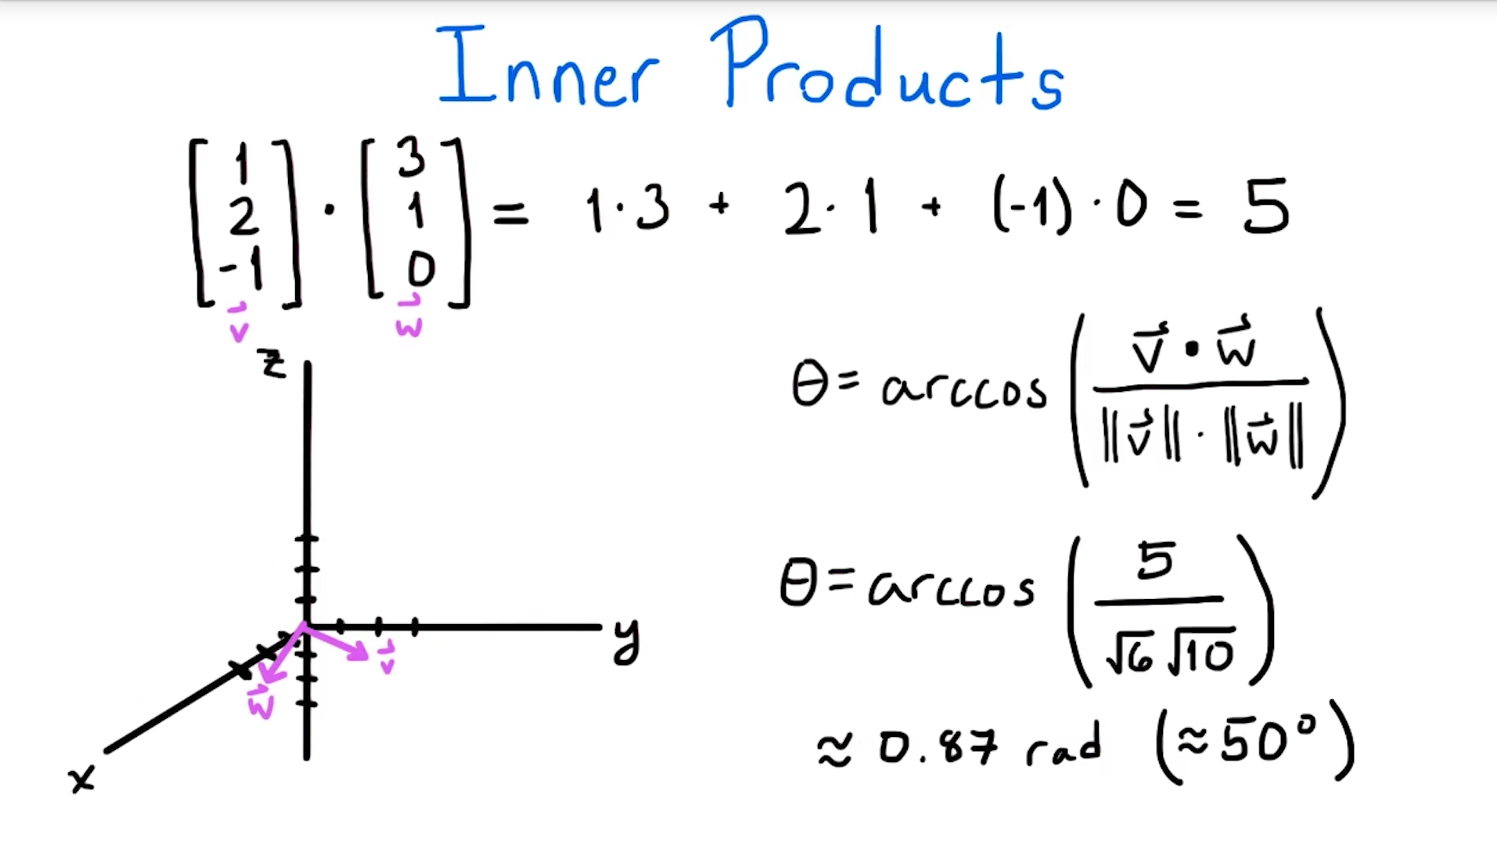 Inner Products
[1 2 -1] · [3 1 0] = 1·3 + 2·1 + (-1)·0 = 5
v⃗ w⃗
θ = arccos (v⃗ • w⃗ / ‖v⃗‖ · ‖w⃗‖)
z
y
v⃗
w⃗
x
θ = arccos (5 / √6 √10)
≈ 0.87 rad (≈50°)